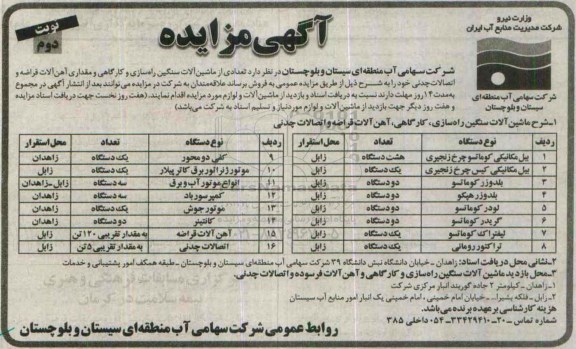 وزارت نیرو
شرکت مدیریت منابع آب ایران
آگهی مزایده
نوبت دوم
شرکت سهامی آب منطقه‌ای
سیستان و بلوچستان
شرکت سهامی آب منطقه‌ای سیستان و بلوچستان در نظر دارد تعدادی از ماشین آلات سنگین راه‌سازی و کارگاهی و مقداری آهن آلات قراضه و
اتصالات چدنی خود را به شرح ذیل از طریق مزایده عمومی به فروش برساند علاقه‌مندان به شرکت در مزایده می‌توانند بعد از انتشار آگهی در مجموع
به مدت ۱۴ روز مهلت دارند نسبت به دریافت اسناد و بازدید از ماشین آلات و لوازم مورد مزایده اقدام نمایند. (هفت روز نخست جهت دریافت اسناد مزایده
و هفت روز دیگر جهت بازدید از ماشین آلات و لوازم مورد نیاز و تسلیم اسناد به شرکت می‌باشد)
۱-شرح ماشین آلات سنگین راه‌سازی، کارگاهی، آهن آلات قراضه و اتصالات چدنی
ردیف نوع دستگاه تعداد محل استقرار ردیف نوع دستگاه تعداد محل استقرار
۱ بیل مکانیکی کوماتسو چرخ زنجیری هشت دستگاه زابل ۹ کفی دو محور یک دستگاه زاهدان
۲ بیل مکانیکی کیس چرخ زنجیری یک دستگاه زابل ۱۰ موتور ژنراتور برق کاترپیلار یک دستگاه زابل
۳ بلدوزر کوماتسو دو دستگاه زابل ۱۱ انواع موتور آب و برق سه دستگاه زابل-زاهدان
۴ بلدوزر هپکو دو دستگاه زابل ۱۲ کمپرسور باد سه دستگاه زاهدان
۵ لودر کوماتسو دو دستگاه زابل ۱۳ موتور جوش یک دستگاه زاهدان
۶ گریدر کوماتسو دو دستگاه زابل ۱۴ کانتینر دو دستگاه زاهدان
۷ لیفتراک کوماتسو یک دستگاه زابل ۱۵ آهن آلات قراضه به مقدار تقریبی ۱۲۰ تن زابل
۸ تراکتور رومانی یک دستگاه زابل ۱۶ اتصالات چدنی به مقدار تقریبی ۵ تن زابل
۲-نشانی محل دریافت اسناد: زاهدان-خیابان دانشگاه نبش دانشگاه ۳۹ شرکت سهامی آب منطقه‌ای سیستان و بلوچستان - طبقه همکف امور پشتیبانی و خدمات
۳-محل بازدید ماشین آلات سنگین راه‌سازی و کارگاهی و آهن آلات فرسوده و اتصالات چدنی.
۱-زاهدان-کیلومتر ۲ جاده گوربند انبار مرکزی شرکت
۲-زابل - فلکه بشیرا... - خیابان امام خمینی، امام خمینی یک انبار امور منابع آب سیستان
هزینه کارشناسی بر عهده برنده می‌باشد.
شماره تماس: ۲۰-۳۳۴۲۹۴۱۰-۰۵۴ داخلی ۳۸۵
روابط عمومی شرکت سهامی آب منطقه‌ای سیستان و بلوچستان